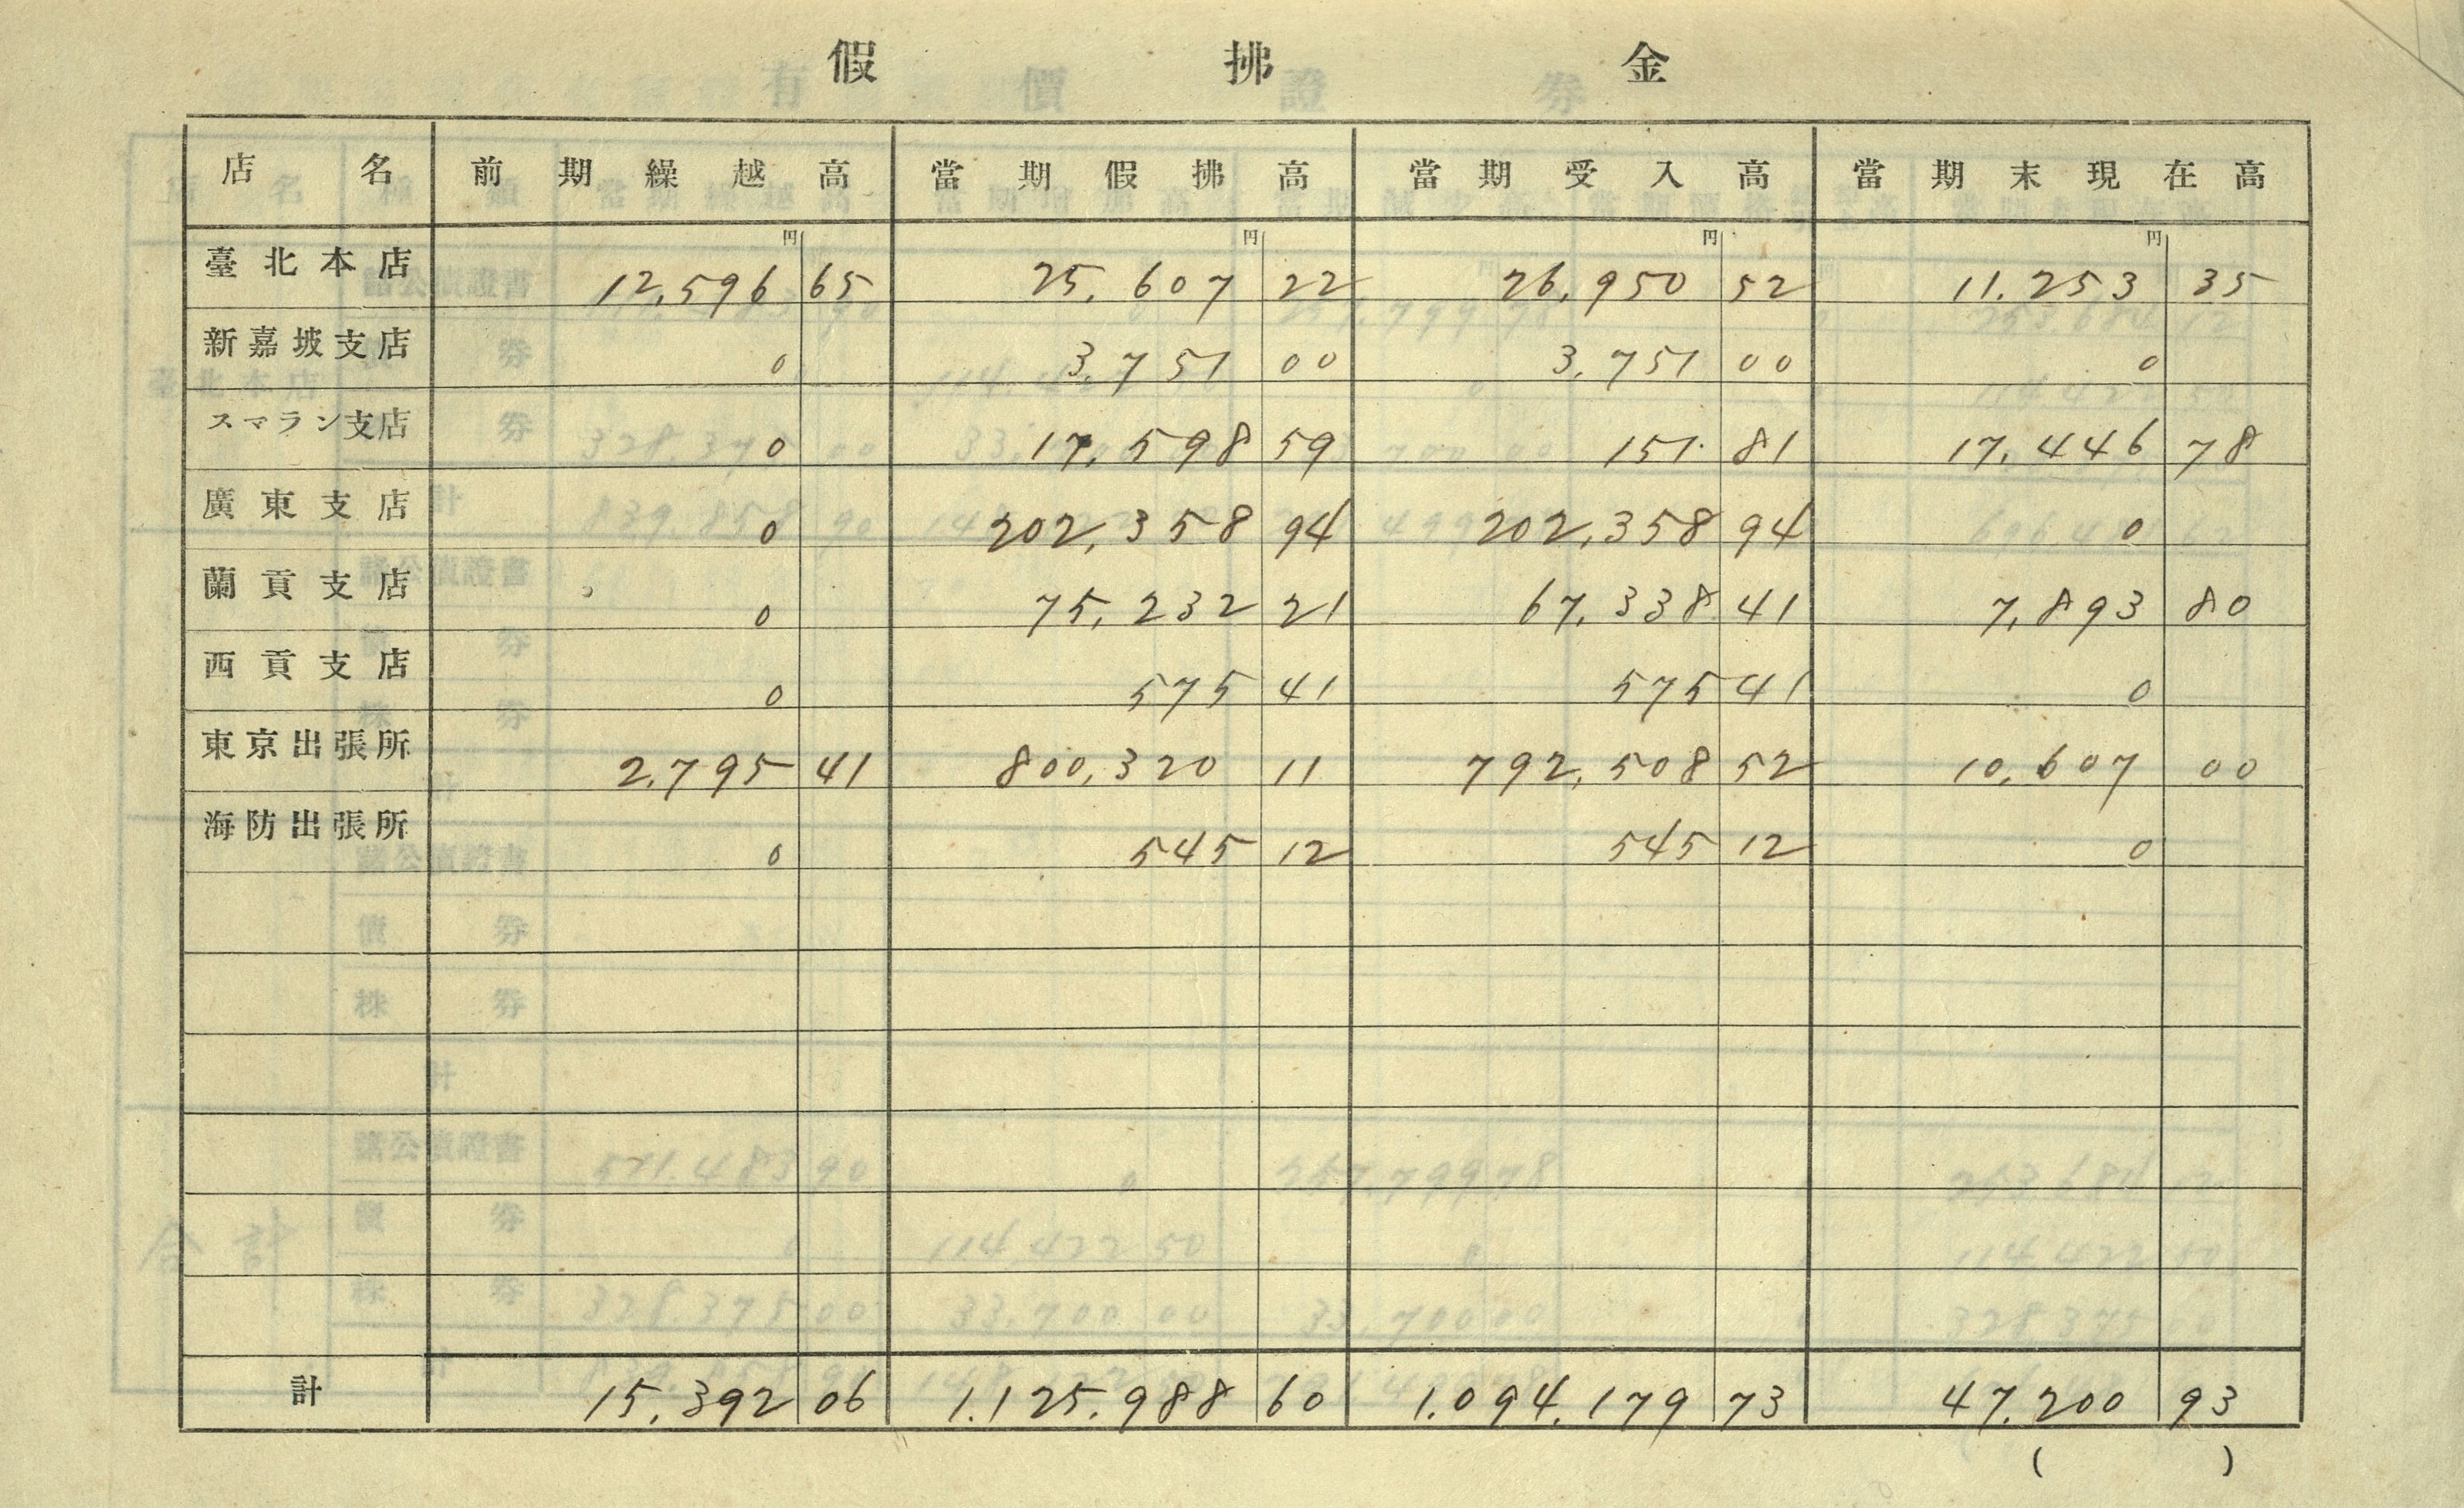 假拂金
店名 前期繰越高 當期假拂高 當期受入高 當期末現在高
円 円 円 円
臺北本店 12,596 65 25,607 22 26,950 52 11,253 35
新嘉坡支店 0 3,751 00 3,751 00 0
スマラン支店 0 17,598 59 151. 81 17,446 78
廣東支店 0 202,358 94 202,358 94 0
蘭貢支店 0 75,232 21 67,338 41 7,893 80
西貢支店 0 575 41 575 41 0
東京出張所 2,795 41 800,320 11 792,508 52 10,607 00
海防出張所 0 545 12 545 12 0
計 15,392 06 1.125.988 60 1.094.179 73 47,200 93
( )